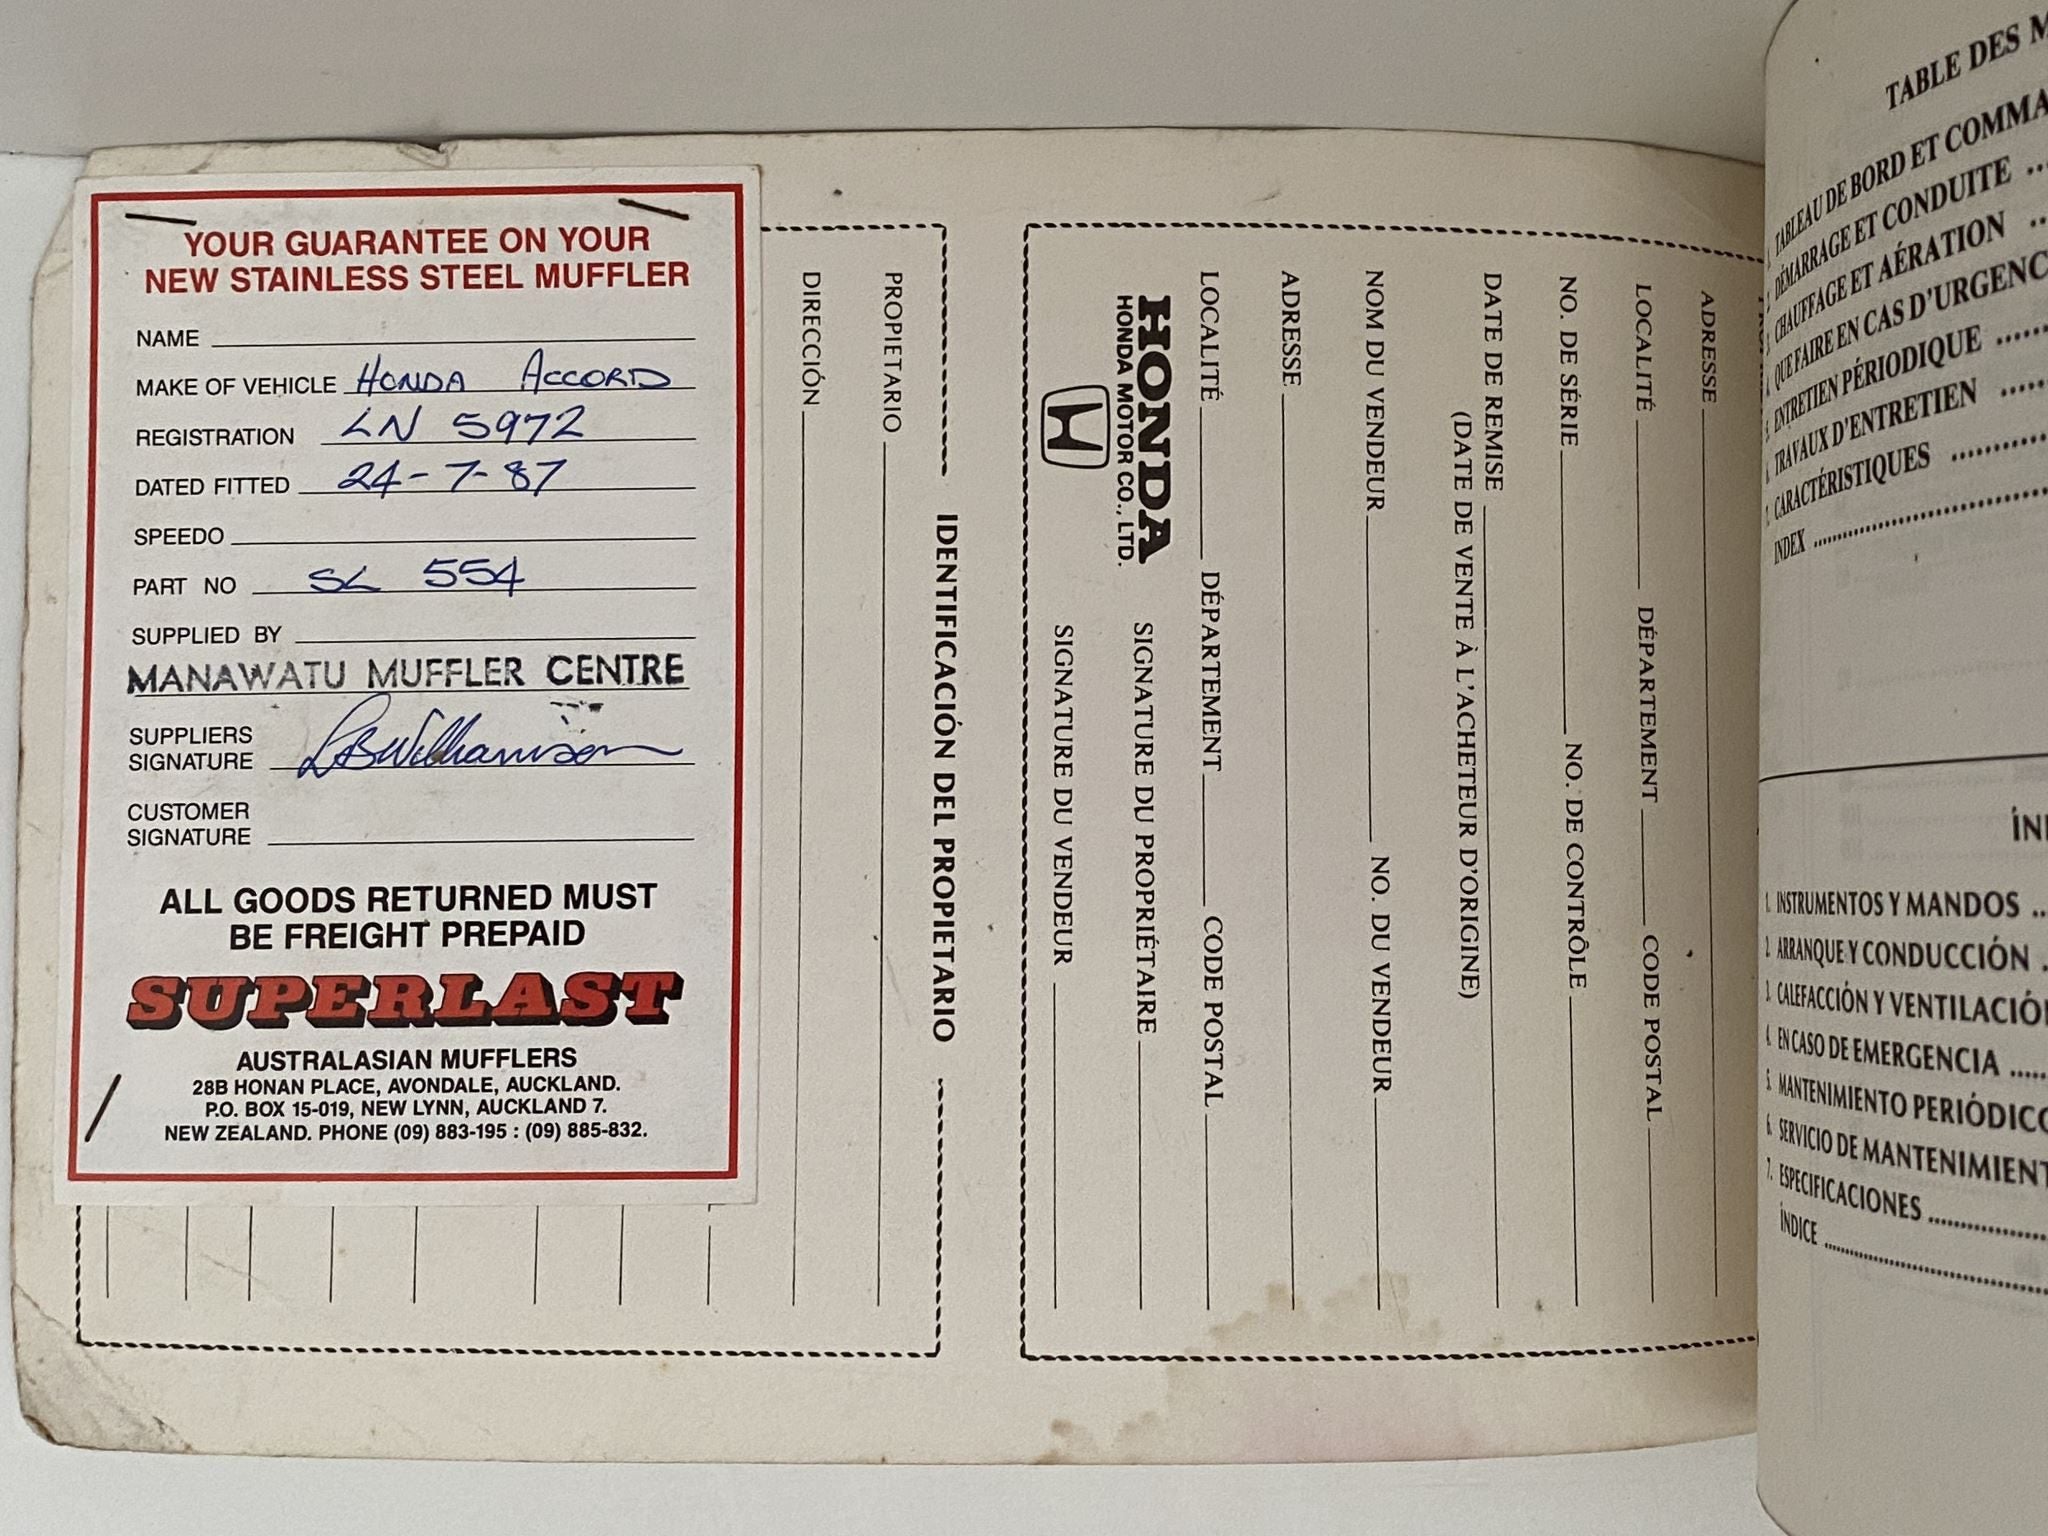 YOUR GUARANTEE ON YOUR
NEW STAINLESS STEEL MUFFLER
NAME
MAKE OF VEHICLE HONDA ACCORD
REGISTRATION LN 5972
DATED FITTED 24-7-87
SPEEDO
PART NO SL 554
SUPPLIED BY
MANAWATU MUFFLER CENTRE
SUPPLIERS
SIGNATURE LBWilliamson
CUSTOMER
SIGNATURE
ALL GOODS RETURNED MUST
BE FREIGHT PREPAID
SUPERLAST
AUSTRALASIAN MUFFLERS
28B HONAN PLACE, AVONDALE, AUCKLAND.
P.O. BOX 15-019, NEW LYNN, AUCKLAND 7.
NEW ZEALAND. PHONE (09) 883-195 : (09) 885-832.
IDENTIFICACIÓN DEL PROPIETARIO
PROPIETARIO
DIRECCIÓN
ADRESSE
LOCALITÉ DÉPARTEMENT CODE POSTAL
NO. DE SÉRIE NO. DE CONTRÔLE
DATE DE REMISE
(DATE DE VENTE À L'ACHETEUR D'ORIGINE)
NOM DU VENDEUR NO. DU VENDEUR
ADRESSE
LOCALITÉ DÉPARTEMENT CODE POSTAL
HONDA
HONDA MOTOR CO., LTD.
SIGNATURE DU PROPRIÉTAIRE
SIGNATURE DU VENDEUR
TABLE DES
1. TABLEAU DE BORD ET
2. DÉMARRAGE ET CONDUITE
3. CHAUFFAGE ET AÉRATION
4. QUE FAIRE EN CAS D'URGENC
5. ENTRETIEN PÉRIODIQUE
6. TRAVAUX D'ENTRETIEN
7. CARACTÉRISTIQUES
INDEX
1. INSTRUMENTOS Y MANDOS
2. ARRANQUE Y CONDUCCIÓN
3. CALEFACCIÓN Y VENTILACIÓ
4. EN CASO DE EMERGENCIA
5. MANTENIMIENTO PERIÓDIC
6. SERVICIO DE MANTENIMIENT
7. ESPECIFICACIONES
ÍNDICE